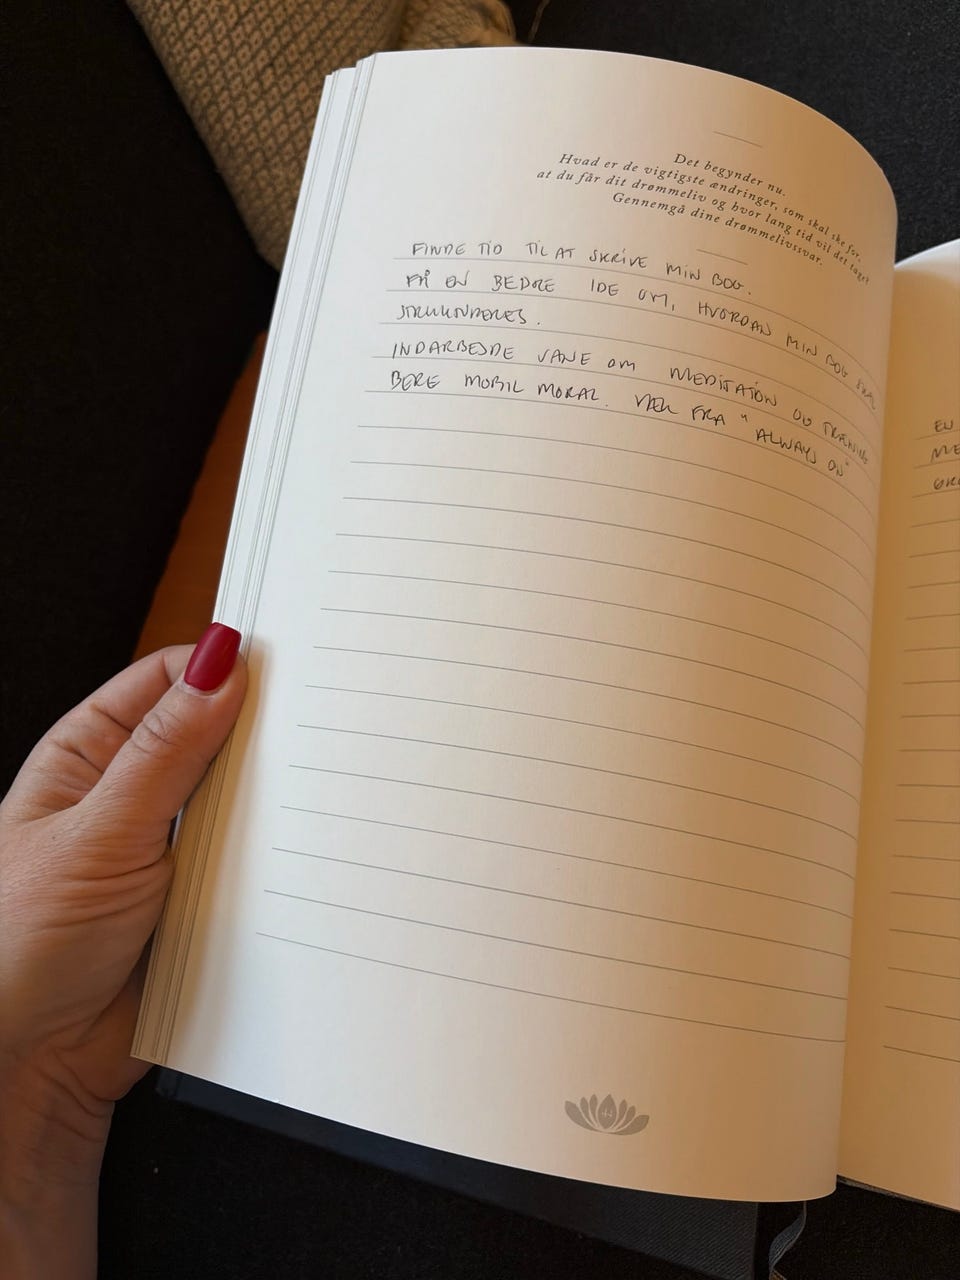 Det begynder nu.
Hvad er de vigtigste ændringer, som skal ske for,
at du får dit drømmeliv og hvor lang tid vil det tage?
Gennemgå dine drømmelivssvar.
FINDE TID TIL AT SKRIVE MIN BOG.
FÅ EN BEDRE IDE OM, HVORDAN MIN BOG SKAL
STRUKTURERES.
INDARBEJDE VANE OM MEDITATION OG TRÆNING
BERE MOBIL MORAL. VÆK FRA "ALWAYS ON"
44
EN
ME